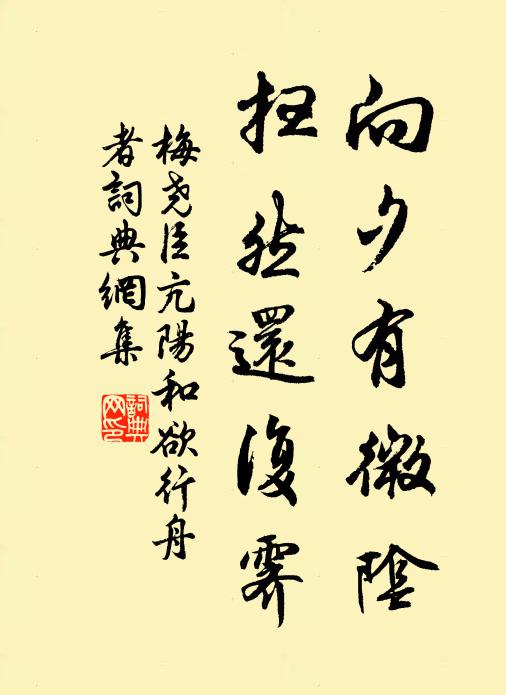 向夕有微陰
枉然還復霽
梅尧臣亢陽和欲行舟
者詞典網集
詞典
网印